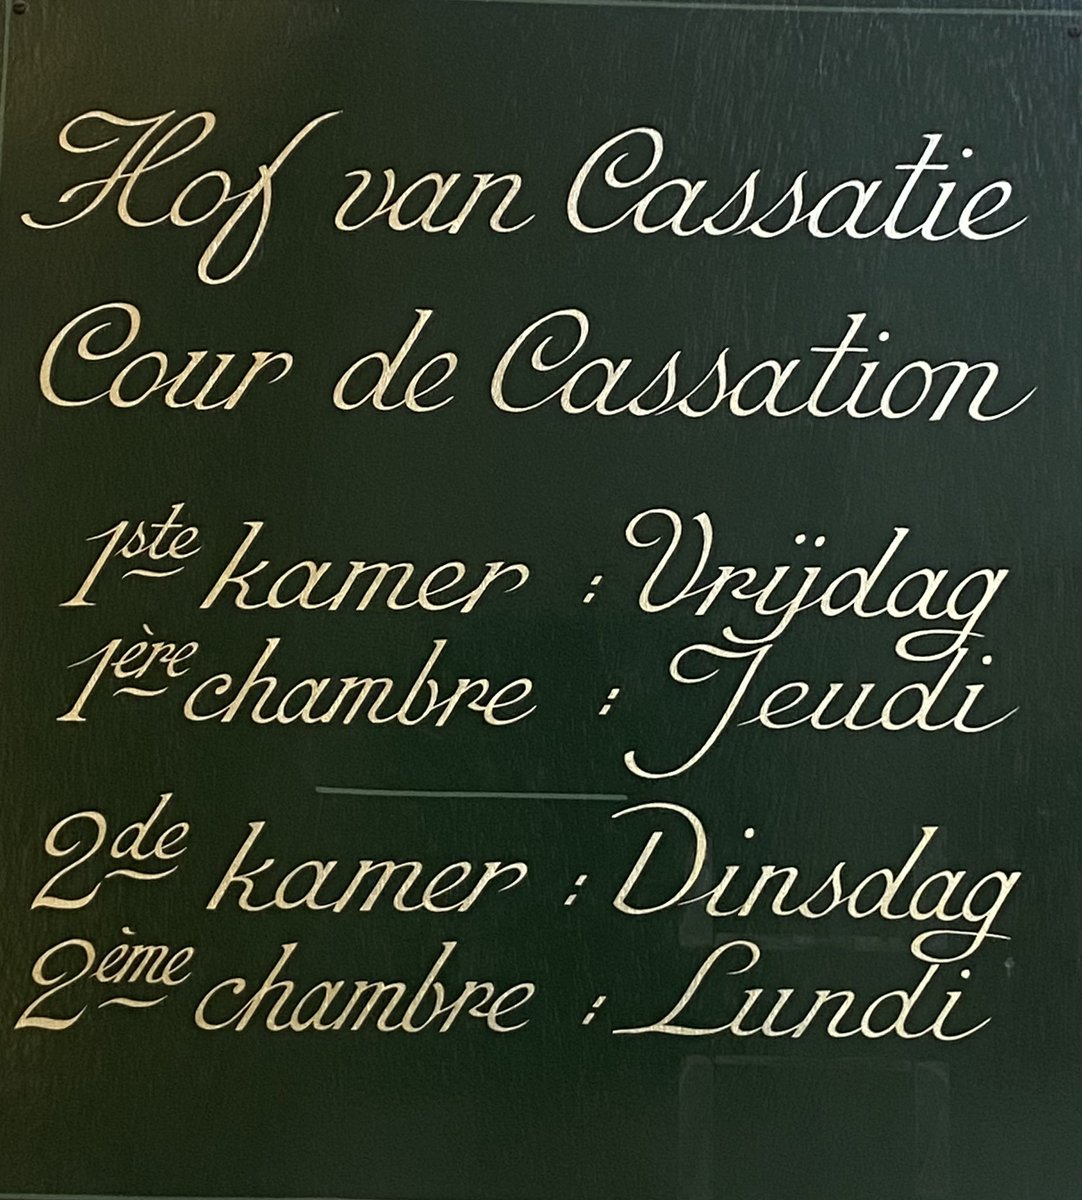 Hof van Cassatie
Cour de Cassation
1ste kamer : Vrijdag
1ère chambre : Jeudi
2de kamer : Dinsdag
2ème chambre : Lundi